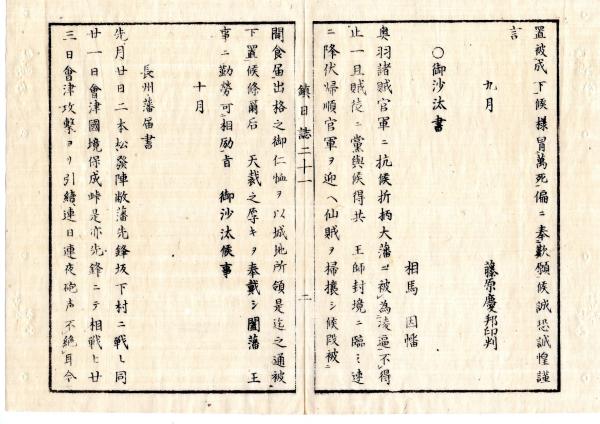 置被成下候様冒萬死偏ニ奉歎願候誠恐誠惶謹
言
九月
藤原慶邦印判
〇御沙汰書
相馬因幡
奥羽諸賊官軍ニ抗候折柄大藩ニ被為凌逼不得
止一旦賊徒ニ黨與候得共王師封境ニ臨ミ速
ニ降伏帰順官軍ヲ迎ヘ仙賊ヲ掃攘シ候段被
鎮日誌二十一
二
聞食届出格之御仁恤ヲ以城地所領是迄之通被
下置候條爾后天裁之厚キヲ奉戴シ闔藩王
事ニ勤勞可相励旨御沙汰候事
十月
長州藩届書
先月廿日二本松發陣敝藩先鋒坂下村ニ戰ヒ同
廿一日會津國境保成峠是亦先鋒ニテ相戰ヒ廿
三日會津攻撃ヨリ引續連日連夜砲声不絶耳今